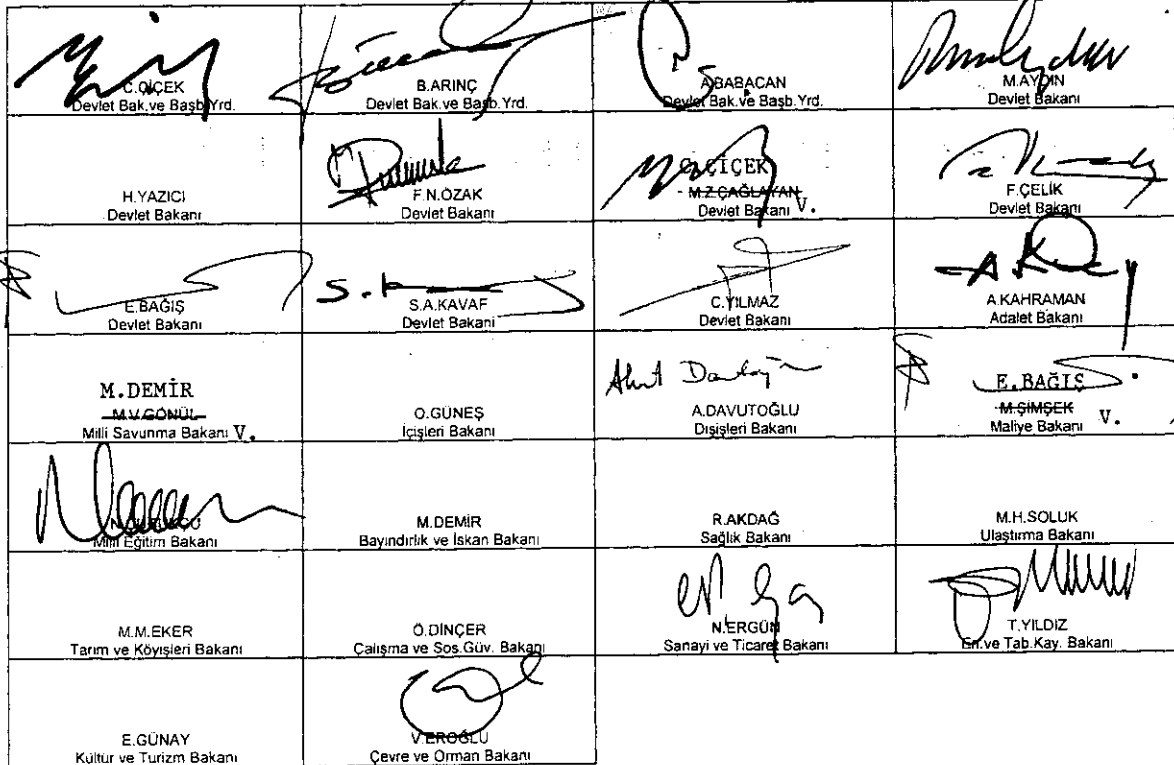 C.ÇİÇEK
Devlet Bak.ve Başb.Yrd.
B.ARINÇ
Devlet Bak.ve Başb.Yrd.
A.BABACAN
Devlet Bak.ve Başb.Yrd.
M.AYDIN
Devlet Bakanı
H.YAZICI
Devlet Bakanı
F.N.ÖZAK
Devlet Bakanı
C.ÇİÇEK
M.Z.ÇAĞLAYAN
Devlet Bakanı V.
F.ÇELİK
Devlet Bakanı
E.BAĞIŞ
Devlet Bakanı
S.A.KAVAF
Devlet Bakanı
C.YILMAZ
Devlet Bakanı
A.KAHRAMAN
Adalet Bakanı
M.DEMİR
M.V.GÖNÜL
Milli Savunma Bakanı V.
O.GÜNEŞ
İçişleri Bakanı
A.DAVUTOĞLU
Dışişleri Bakanı
E.BAĞIŞ
M.ŞİMŞEK
Maliye Bakanı V.
Milli Eğitim Bakanı
M.DEMİR
Bayındırlık ve İskan Bakanı
R.AKDAĞ
Sağlık Bakanı
M.H.SOLUK
Ulaştırma Bakanı
M.M.EKER
Tarım ve Köyişleri Bakanı
Ö.DİNÇER
Çalışma ve Sos.Güv. Bakanı
N.ERGÜN
Sanayi ve Ticaret Bakanı
T.YILDIZ
En.ve Tab.Kay. Bakanı
E.GÜNAY
Kültür ve Turizm Bakanı
V.EROĞLU
Çevre ve Orman Bakanı